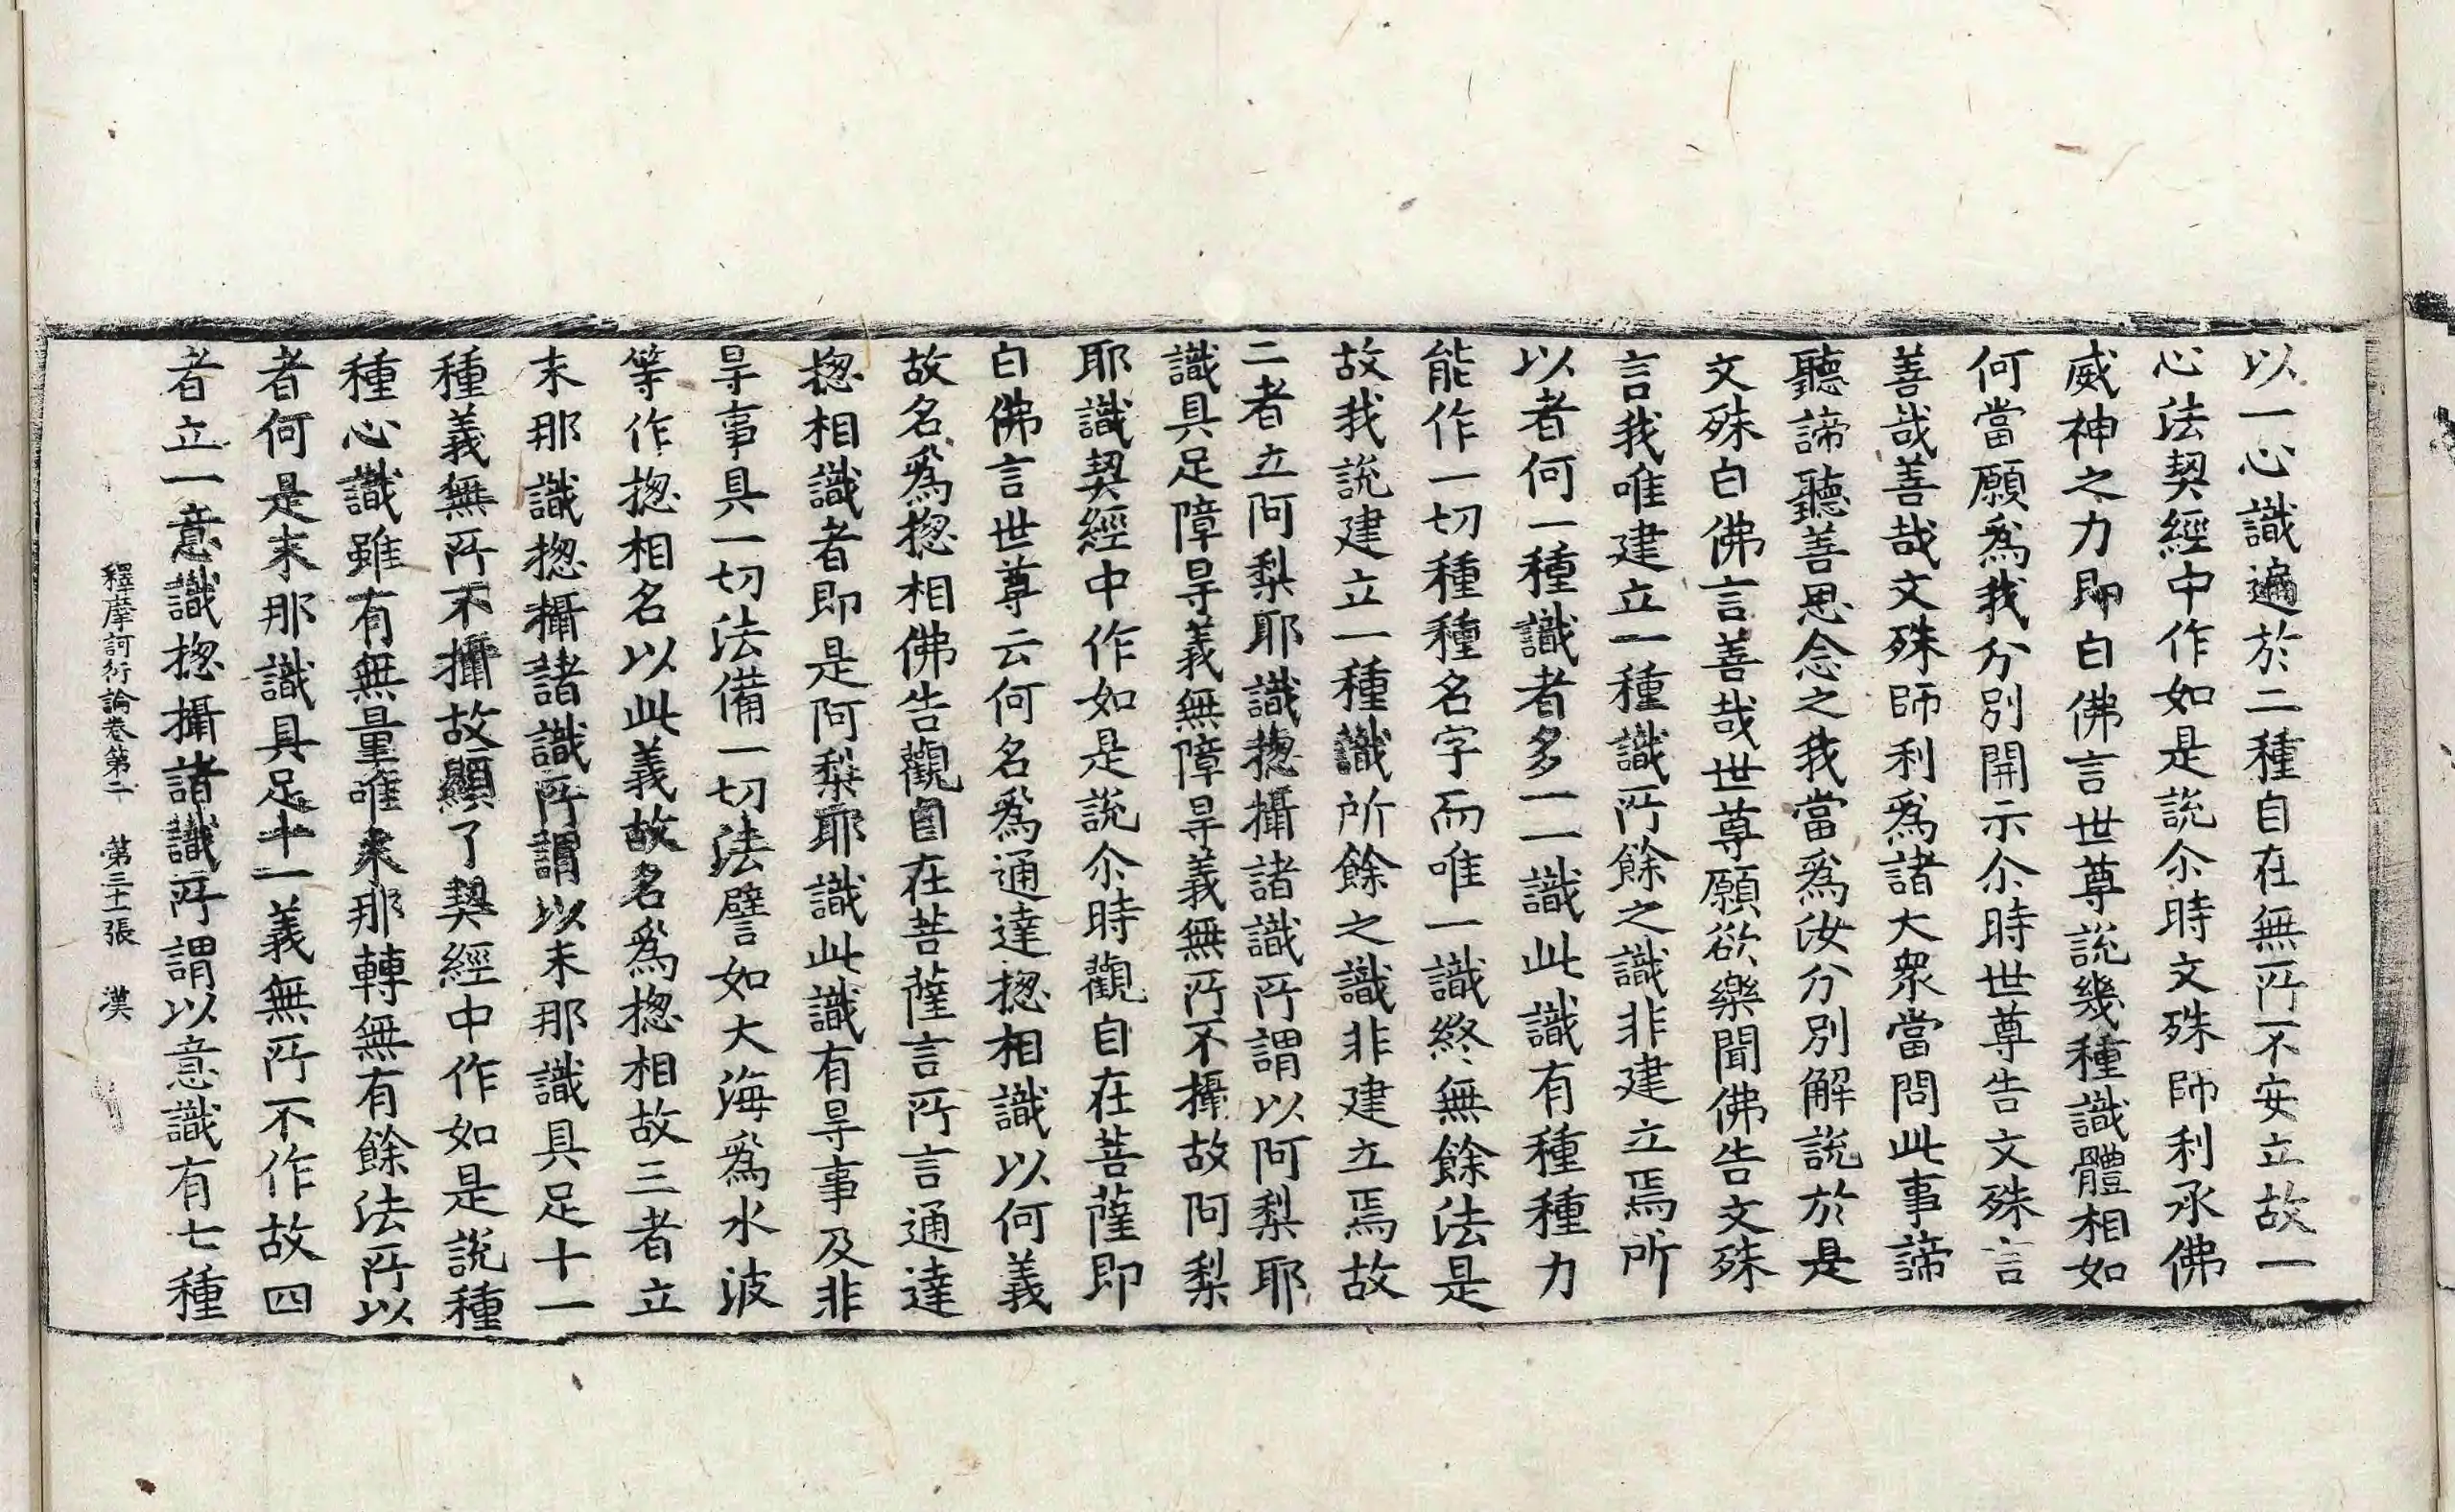 以一心識遍於二種自在無所不安立故一
心法契經中作如是說尒時文殊師利承佛
威神之力即白佛言世尊說幾種識體相如
何當願爲我分別開示尒時世尊告文殊言
善哉善哉文殊師利爲諸大衆當問此事諦
聽諦聽善思念之我當爲汝分別解說於是
文殊白佛言善哉世尊願欲樂聞佛告文殊
言我唯建立一種識所餘之識非建立焉所
以者何一種識者多一一識此識有種種力
能作一切種種名字而唯一識終無餘法是
故我說建立一種識所餘之識非建立焉故
二者立阿梨耶識揔攝諸識所謂以阿梨耶
識具足障㝵義無障㝵義無所不攝故阿梨
耶識契經中作如是說尒時觀自在菩薩即
白佛言世尊云何名爲通達揔相識以何義
故名爲揔相佛告觀自在菩薩言所言通達
揔相識者即是阿梨耶識此識有㝵事及非
㝵事具一切法備一切法譬如大海爲水波
等作揔相名以此義故名爲揔相故三者立
末那識揔攝諸識所謂以末那識具足十一
種義無所不攝故顯了契經中作如是說種
種心識雖有無量唯末那轉無有餘法所以
者何是末那識具足十一義無所不作故四
者立一意識揔攝諸識所謂以意識有七種
釋摩訶衍論卷第二　第三十一張　漢